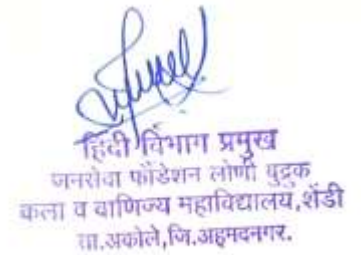 हिंदी विभाग प्रमुख
जनसेवा फौंडेशन लोणी बुद्रुक
कला व वाणिज्य महाविद्यालय,शेंडी
ता.अकोले,जि.अहमदनगर.